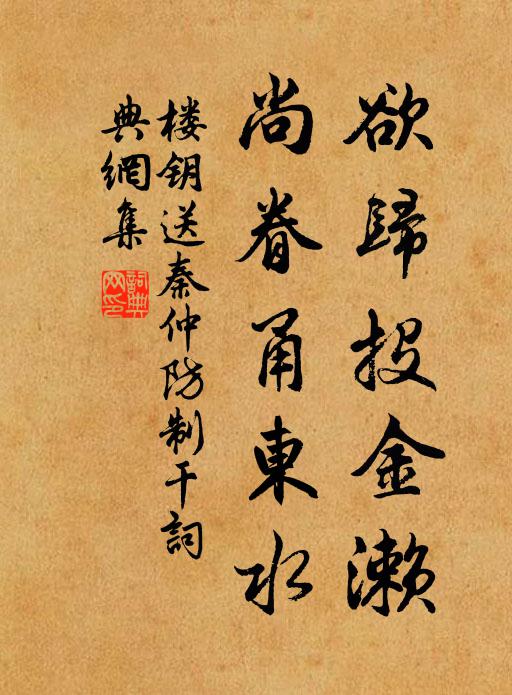 欲歸投金濑
尚眷甬東水
楼钥送秦仲防制干詞
典網集
詞典網印